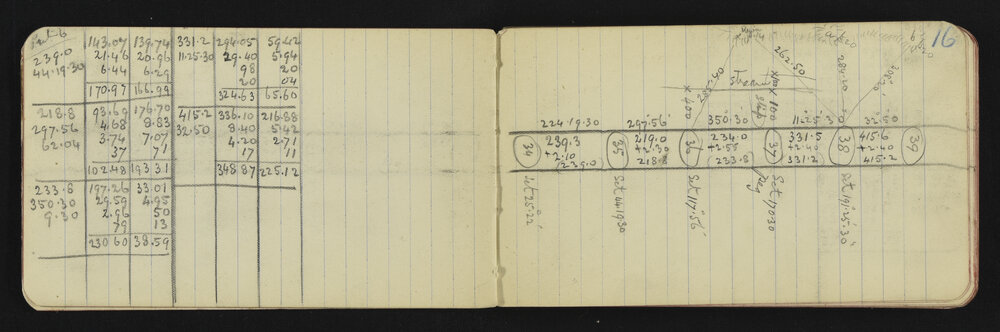 143.07 139.74 331.2 294.05 59.42
239.0 21.46 20.96 11.25.30 29.40 5.94
44.19.30 6.44 6.29 98 20
20 04
170.97 166.99 324.63 65.60
218.8 93.69 176.70 415.2 336.10 216.88
297.56 4.68 8.83 32.50 8.40 5.42
62.04 3.74 7.07 4.20 2.71
37 71 17 11
102.48 193.31 348.87 225.12
233.8 197.26 33.01
350.30 29.59 4.95
9.30 2.96 50
79 13
230.60 38.59
16
262.50
285.40
284.20
308.20
stream
× 400
× 100
224.19.30 297.56 350.30 11.25.30 32.50
34 239.3 35 219.0 36 234.0 37 331.5 38 415.6 39
+2.10 +2.30 +2.55 +2.40 +2.40
239.0 218.8 (233.8) 331.2 415.2
Set 25.22
Set 44.19.30
Set 117.56
Set 170.30
Peg
Set 191.25.30